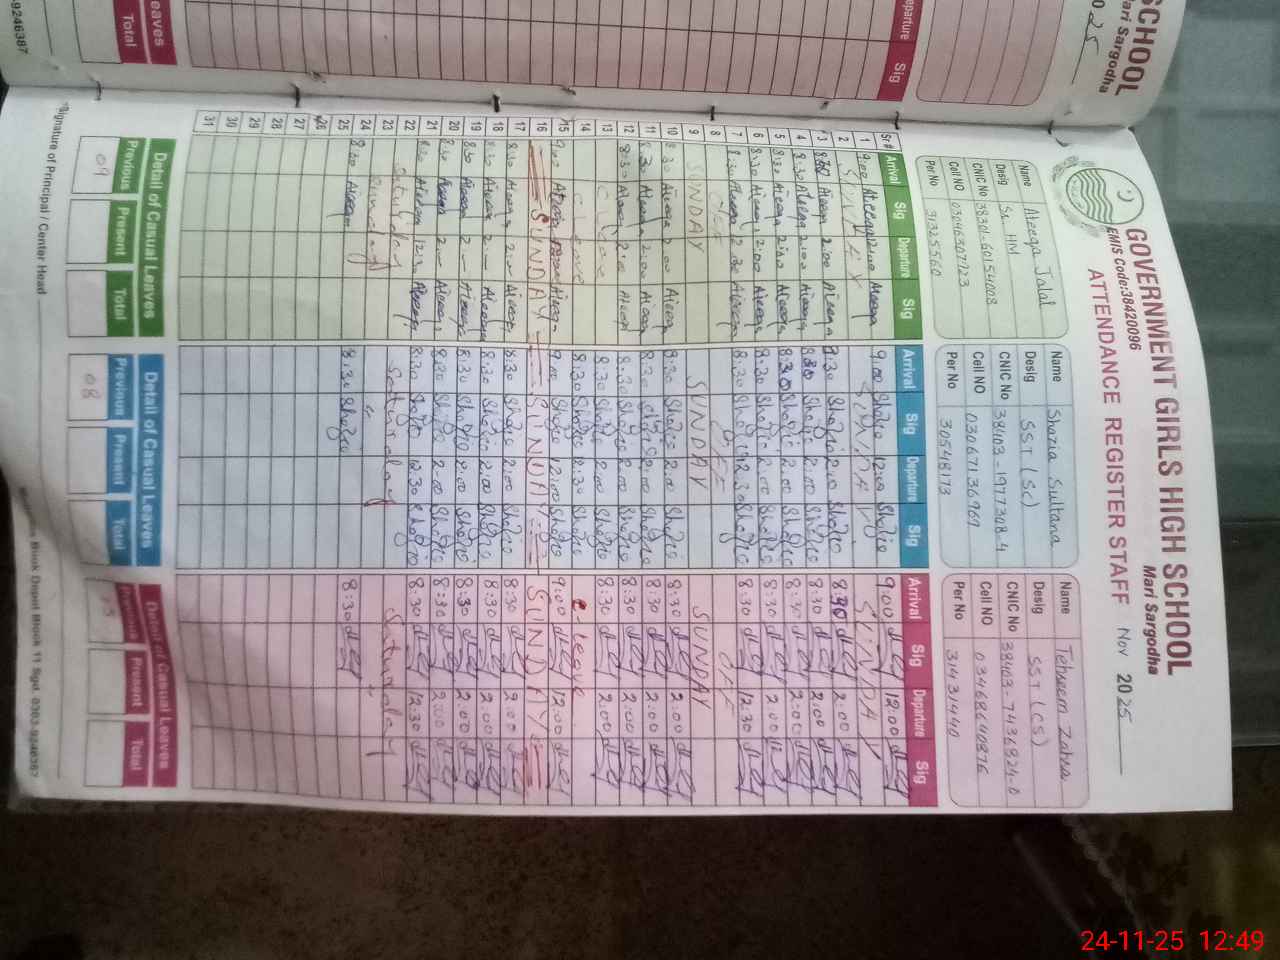 GOVERNMENT GIRLS HIGH SCHOOL
Mari Sargodha
EMIS Code:38420096
ATTENDANCE REGISTER STAFF Nov 2025
Name Ateeqa Jalal
Desig Sr. HM
CNIC No 38301-6015400-8
Cell NO 03046307123
Per No 31325560
Name Shazia Sultana
Desig SST (Sc)
CNIC No 38403-1977308-4
Cell NO 03067136969
Per No 30548173
Name Tehreem Zahra
Desig SST (CS)
CNIC No 38403-7436824-0
Cell NO 03468640876
Per No 31431440
Sr# Arrival Sig Departure Sig Arrival Sig Departure Sig Arrival Sig Departure Sig
1 9:00 Ateeqa 12:00 Ateeqa 9:00 Shazia 12:00 Shazia 9:00 12:00
2 SUNDAY SUNDAY SUNDAY
3 8:30 Ateeqa 2:00 Ateeqa 8:30 Shazia 2:00 Shazia 8:30 2:00
4 8:30 Ateeqa 2:00 Ateeqa 8:30 Shazia 2:00 Shazia 8:30 2:00
5 8:30 Ateeqa 2:00 Ateeqa 8:30 Shazia 2:00 Shazia 8:30 2:00
6 8:30 Ateeqa 2:00 Ateeqa 8:30 Shazia 2:00 Shazia 8:30 2:00
7 8:30 Ateeqa 12:30 Ateeqa 8:30 Shazia 12:30 Shazia 8:30 12:30
8 OFF OFF OFF
9 SUNDAY SUNDAY SUNDAY
10 8:30 Ateeqa 2:00 Ateeqa 8:30 Shazia 2:00 Shazia 8:30 2:00
11 8:30 Ateeqa 2:00 Ateeqa 8:30 Shazia 2:00 Shazia 8:30 2:00
12 8:30 Ateeqa 2:00 Ateeqa 8:30 Shazia 2:00 Shazia 8:30 2:00
13 8:30 Shazia 2:00 Shazia 8:30 2:00
14 8:30 Shazia 2:30 Shazia
15 9:00 Ateeqa Ateeqa 9:00 Shazia 12:00 Shazia 9:00 12:00
16 SUNDAY SUNDAY SUNDAY
17 8:30 Ateeqa 2:00 Ateeqa 8:30 Shazia 2:00 Shazia 8:30 2:00
18 8:30 Ateeqa 2 — Ateeqa 8:30 Shazia 2:00 Shazia 8:30 2:00
19 8:30 Ateeqa 2 — Ateeqa 8:30 Shazia 2:00 Shazia 8:30 2:00
20 8:30 Ateeqa 2 — Ateeqa 8:30 Shazia 2:00 Shazia 8:30 2:00
21 8:30 Ateeqa 12:30 Ateeqa 8:30 Shazia 12:30 Shazia 8:30 12:30
22 Saturday Saturday Saturday
23
24 8:30 Ateeqa 8:30 Shazia 8:30
25
26
27
28
29
30
31
Detail of Casual Leaves Detail of Casual Leaves Detail of Casual Leaves
Previous Present Total Previous Present Total Previous Present Total
09 08
Signature of Principal / Center Head
Book Depot Block 11 Sgd. 0303-9246387
SCHOOL
Mari Sargodha
Departure Sig
Leaves
Total
-9246387
24-11-25 12:49